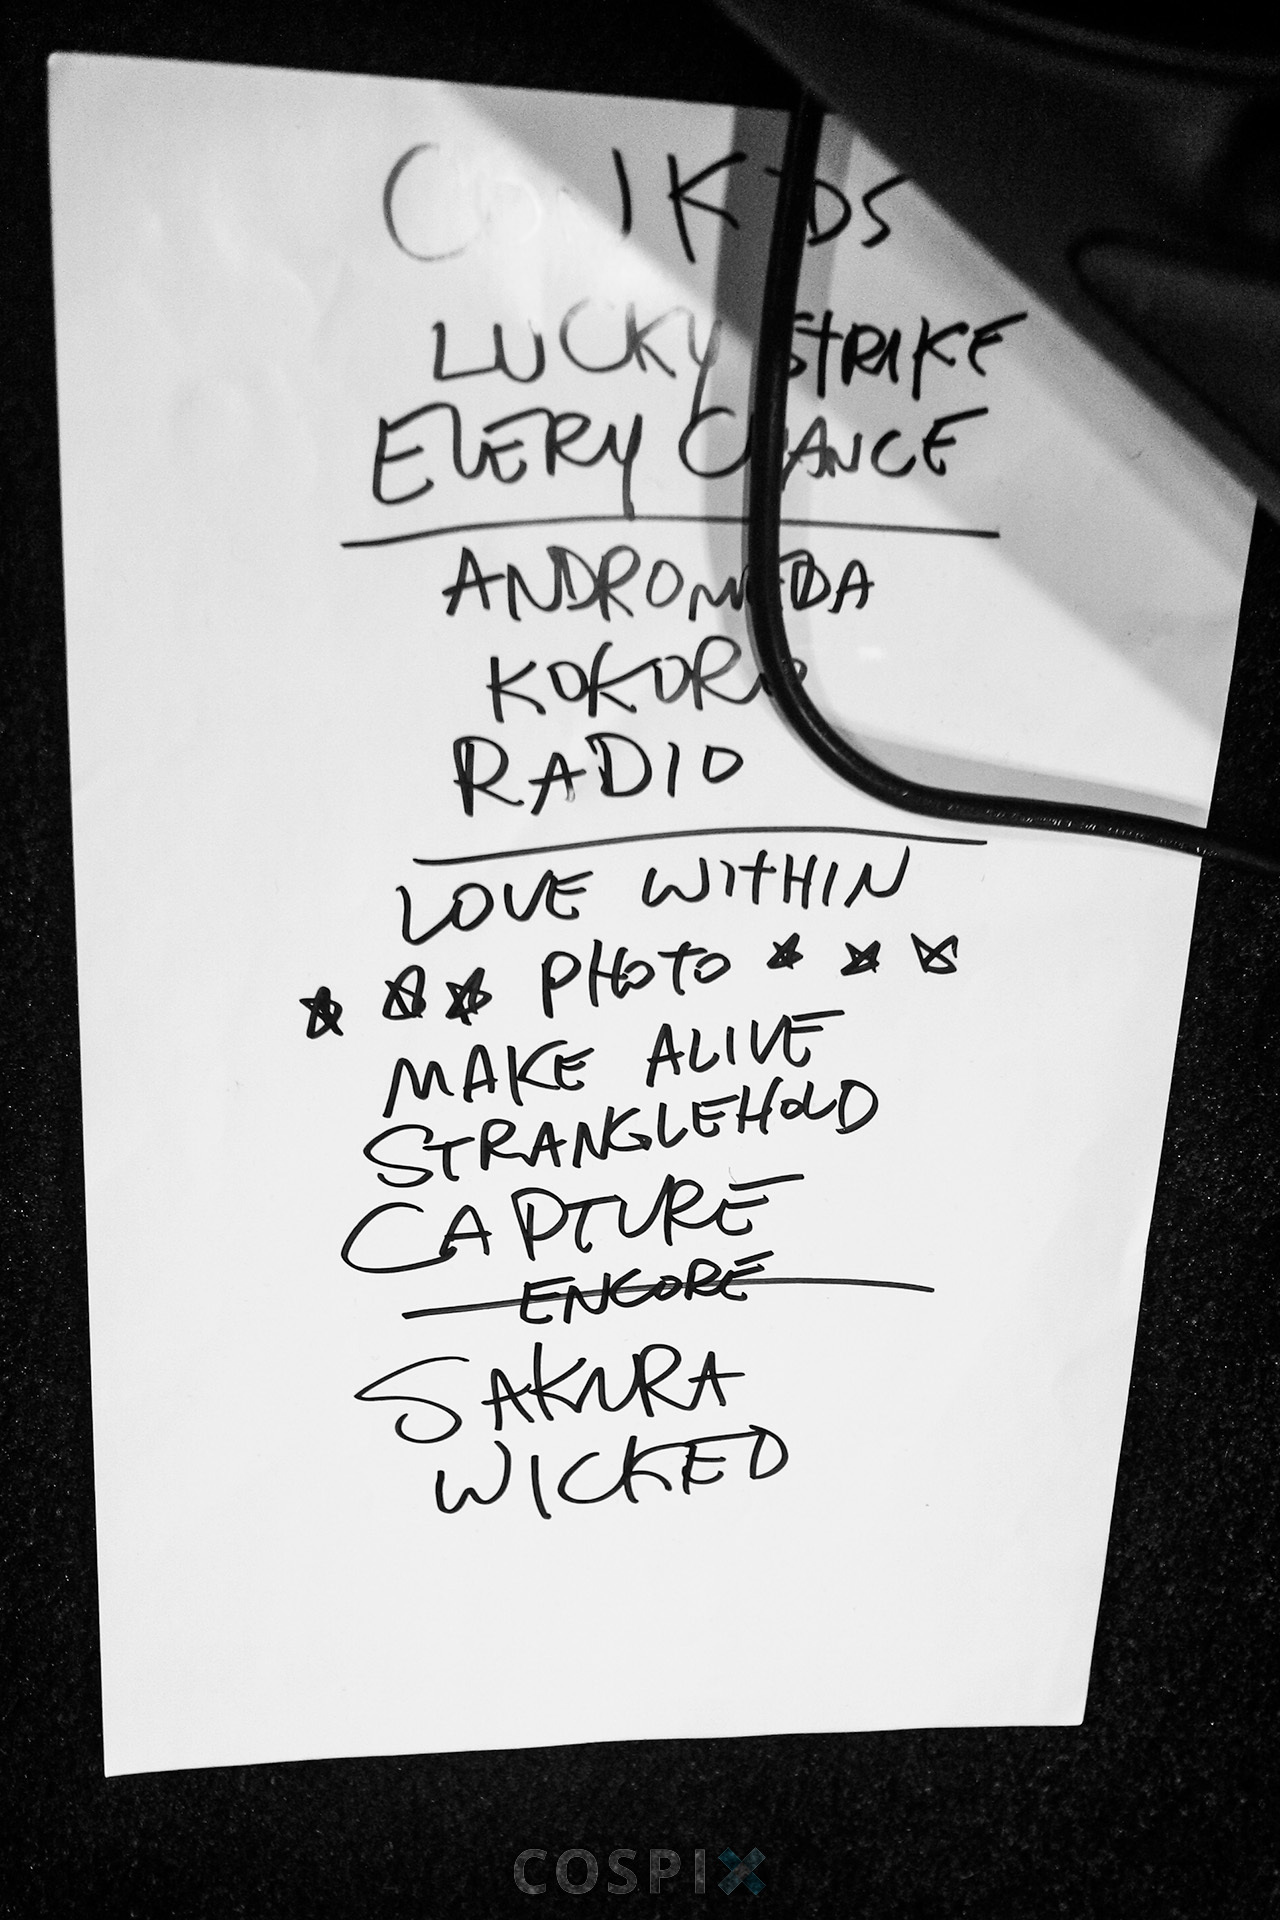 LUCKY STRIKE
EVERY CHANCE
ANDROMEDA
KOKORO
RADIO
LOVE WITHIN
PHOTO
MAKE ALIVE
STRANGLEHOLD
CAPTURE
ENCORE
SAKURA
WICKED
COSPIX